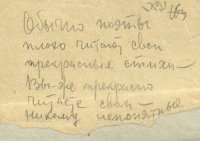 Обычно поэты
плохо читают свои
прекрасные стихи —
Вы же прекрасно
читаете свои
никому непонятные